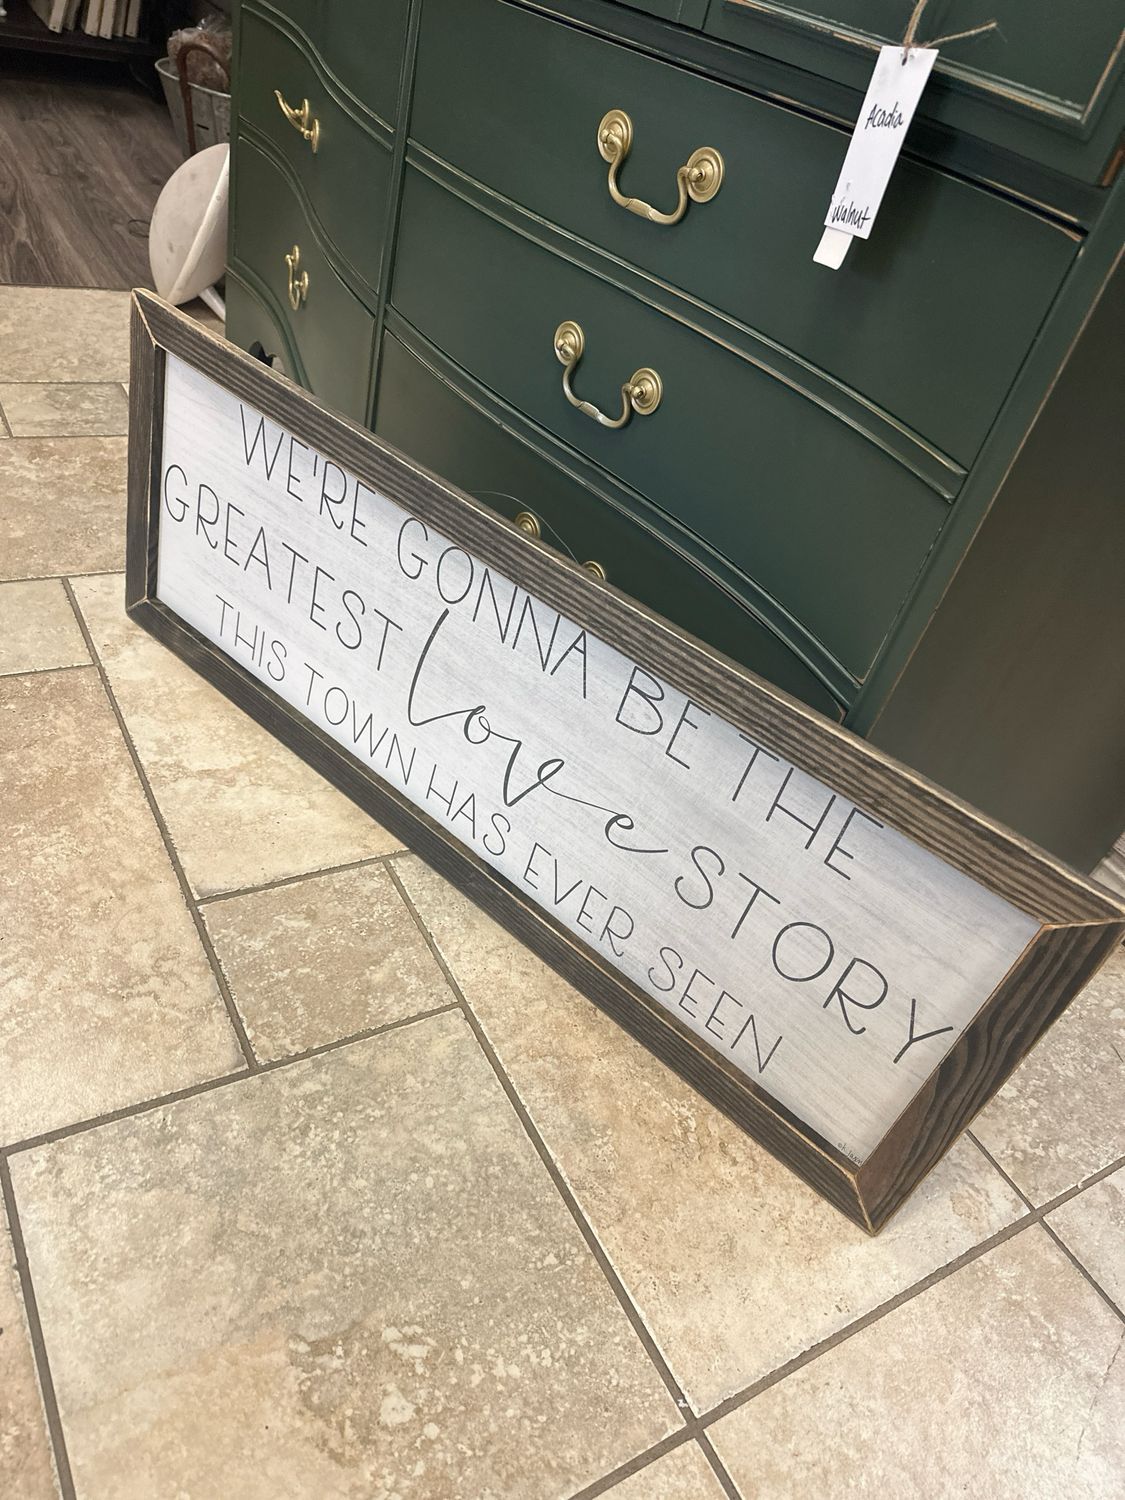 Acadia
Walnut
WE'RE GONNA BE THE
GREATEST love STORY
THIS TOWN HAS EVER SEEN